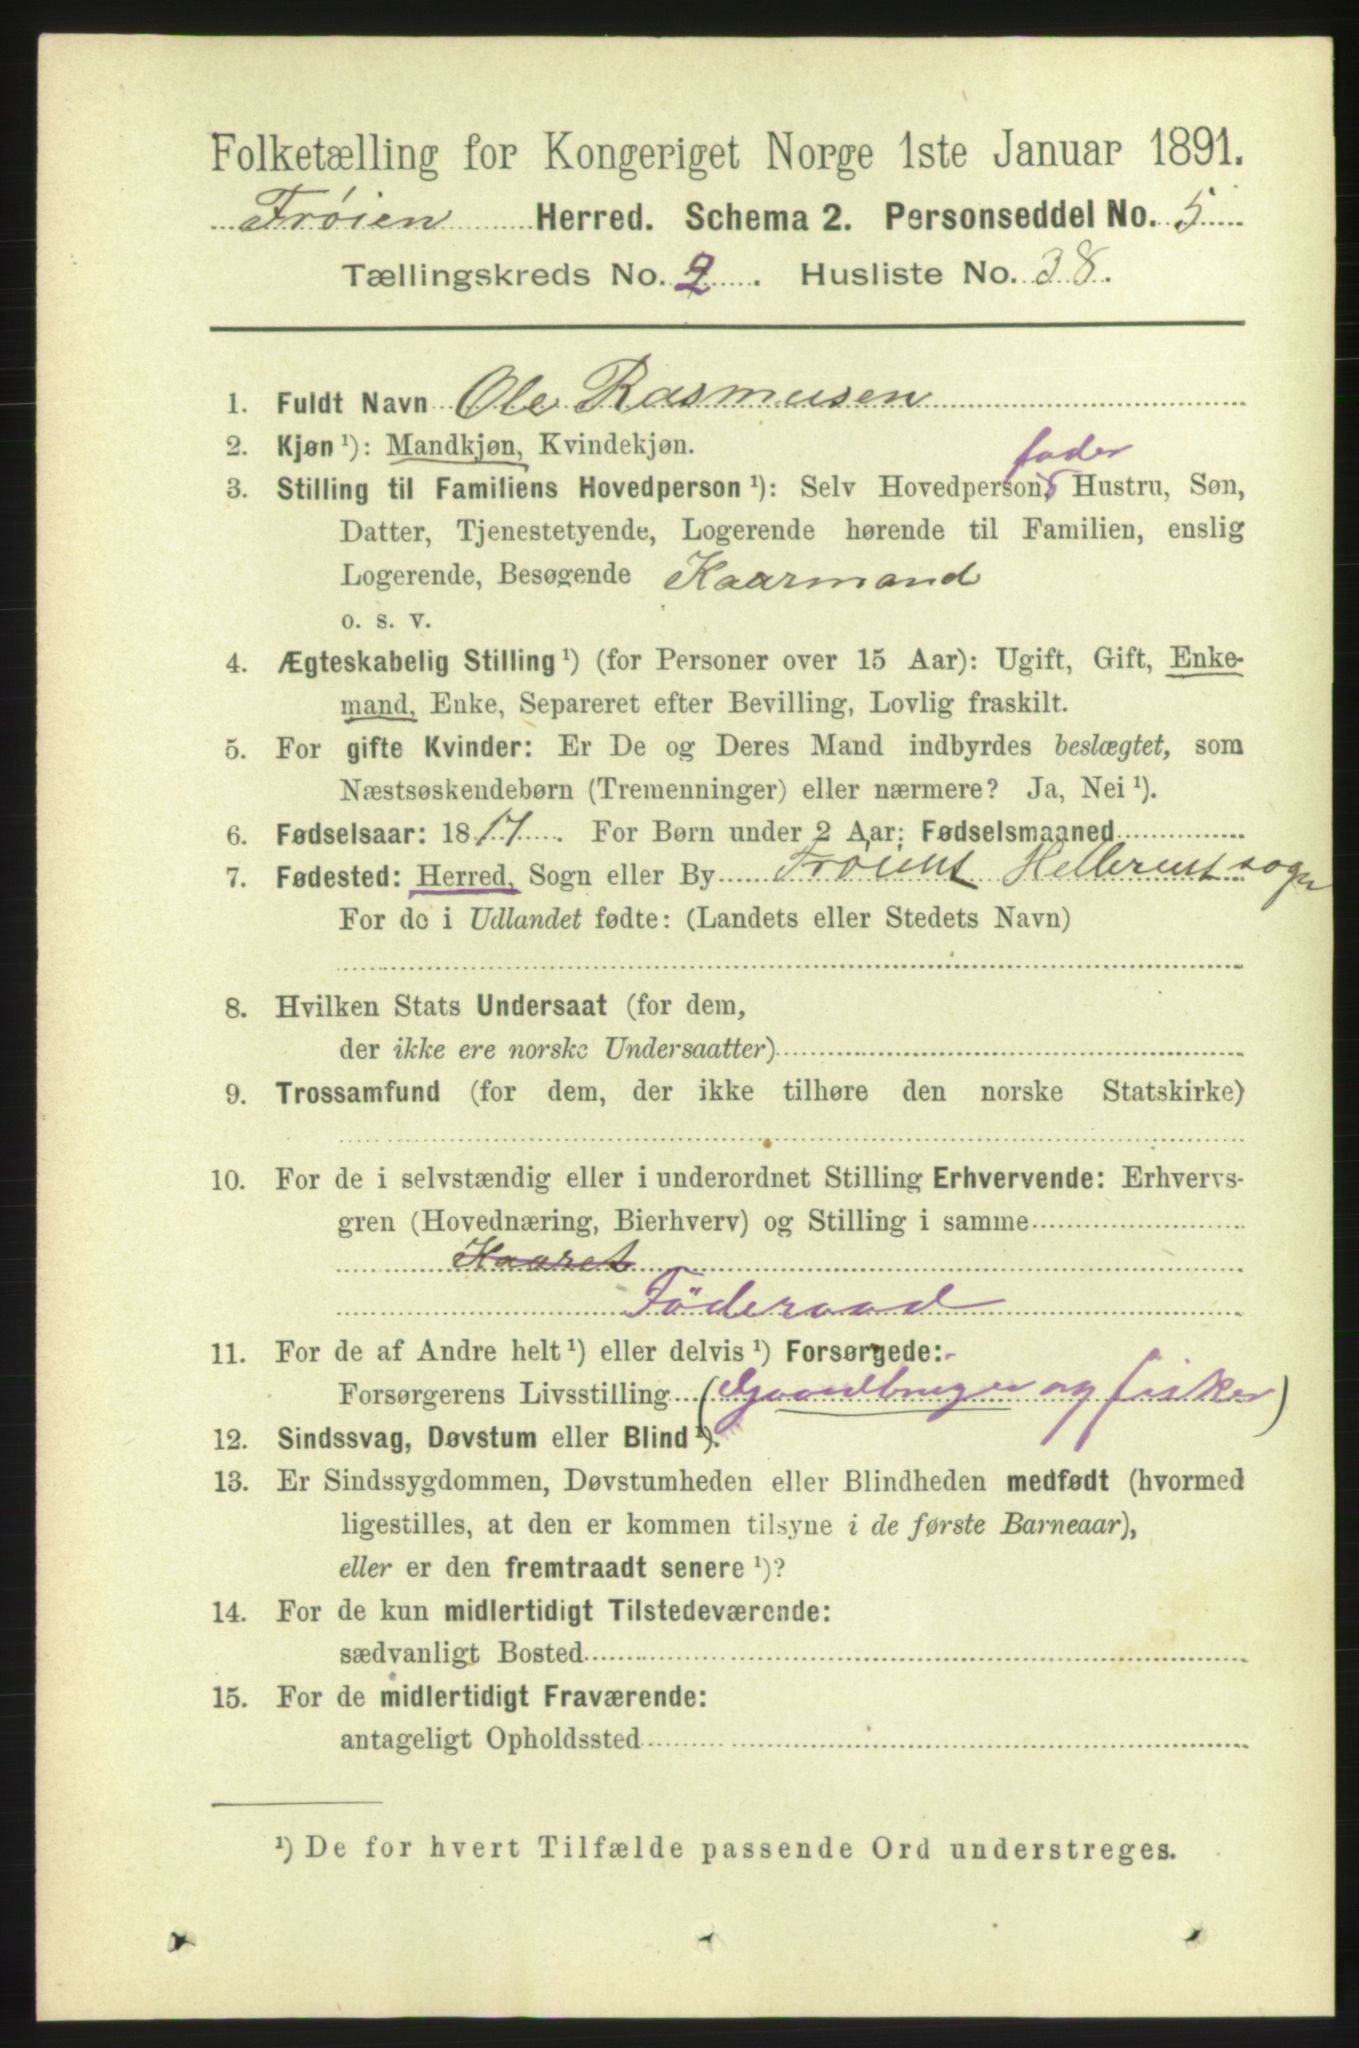 Folketælling for Kongeriget Norge 1ste Januar 1891.
Frøien Herred. Schema 2. Personseddel No. 5
Tællingskreds No. 2. Husliste No. 38.
1. Fuldt Navn Ole Rasmusen
2. Kjøn ¹): Mandkjøn, Kvindekjøn.
fader
3. Stilling til Familiens Hovedperson ¹): Selv Hovedperson, Hustru, Søn,
Datter, Tjenestetyende, Logerende hørende til Familien, enslig
Logerende, Besøgende Kaarmand
o. s. v.
4. Ægteskabelig Stilling ¹) (for Personer over 15 Aar): Ugift, Gift, Enke-
mand, Enke, Separeret efter Bevilling, Lovlig fraskilt.
5. For gifte Kvinder: Er De og Deres Mand indbyrdes beslægtet, som
Næstsøskendebørn (Tremenninger) eller nærmere? Ja, Nei ¹).
6. Fødselsaar: 1817. For Børn under 2 Aar: Fødselsmaaned
7. Fødested: Herred, Sogn eller By Frøiens Hellerens sogn
For de i Udlandet fødte: (Landets eller Stedets Navn)
8. Hvilken Stats Undersaat (for dem,
der ikke ere norske Undersaatter)
9. Trossamfund (for dem, der ikke tilhøre den norske Statskirke)
10. For de i selvstændig eller i underordnet Stilling Erhvervende: Erhvervs-
gren (Hovednæring, Bierhverv) og Stilling i samme
Kaaret
Föderaad
11. For de af Andre helt ¹) eller delvis ¹) Forsørgede:
Forsørgerens Livsstilling (Gaardbruger og fisker)
12. Sindssvag, Døvstum eller Blind ¹).
13. Er Sindssygdommen, Døvstumheden eller Blindheden medfødt (hvormed
ligestilles, at den er kommen tilsyne i de første Barneaar),
eller er den fremtraadt senere ¹)?
14. For de kun midlertidigt Tilstedeværende:
sædvanligt Bosted
15. For de midlertidigt Fraværende:
antageligt Opholdssted
¹) De for hvert Tilfælde passende Ord understreges.